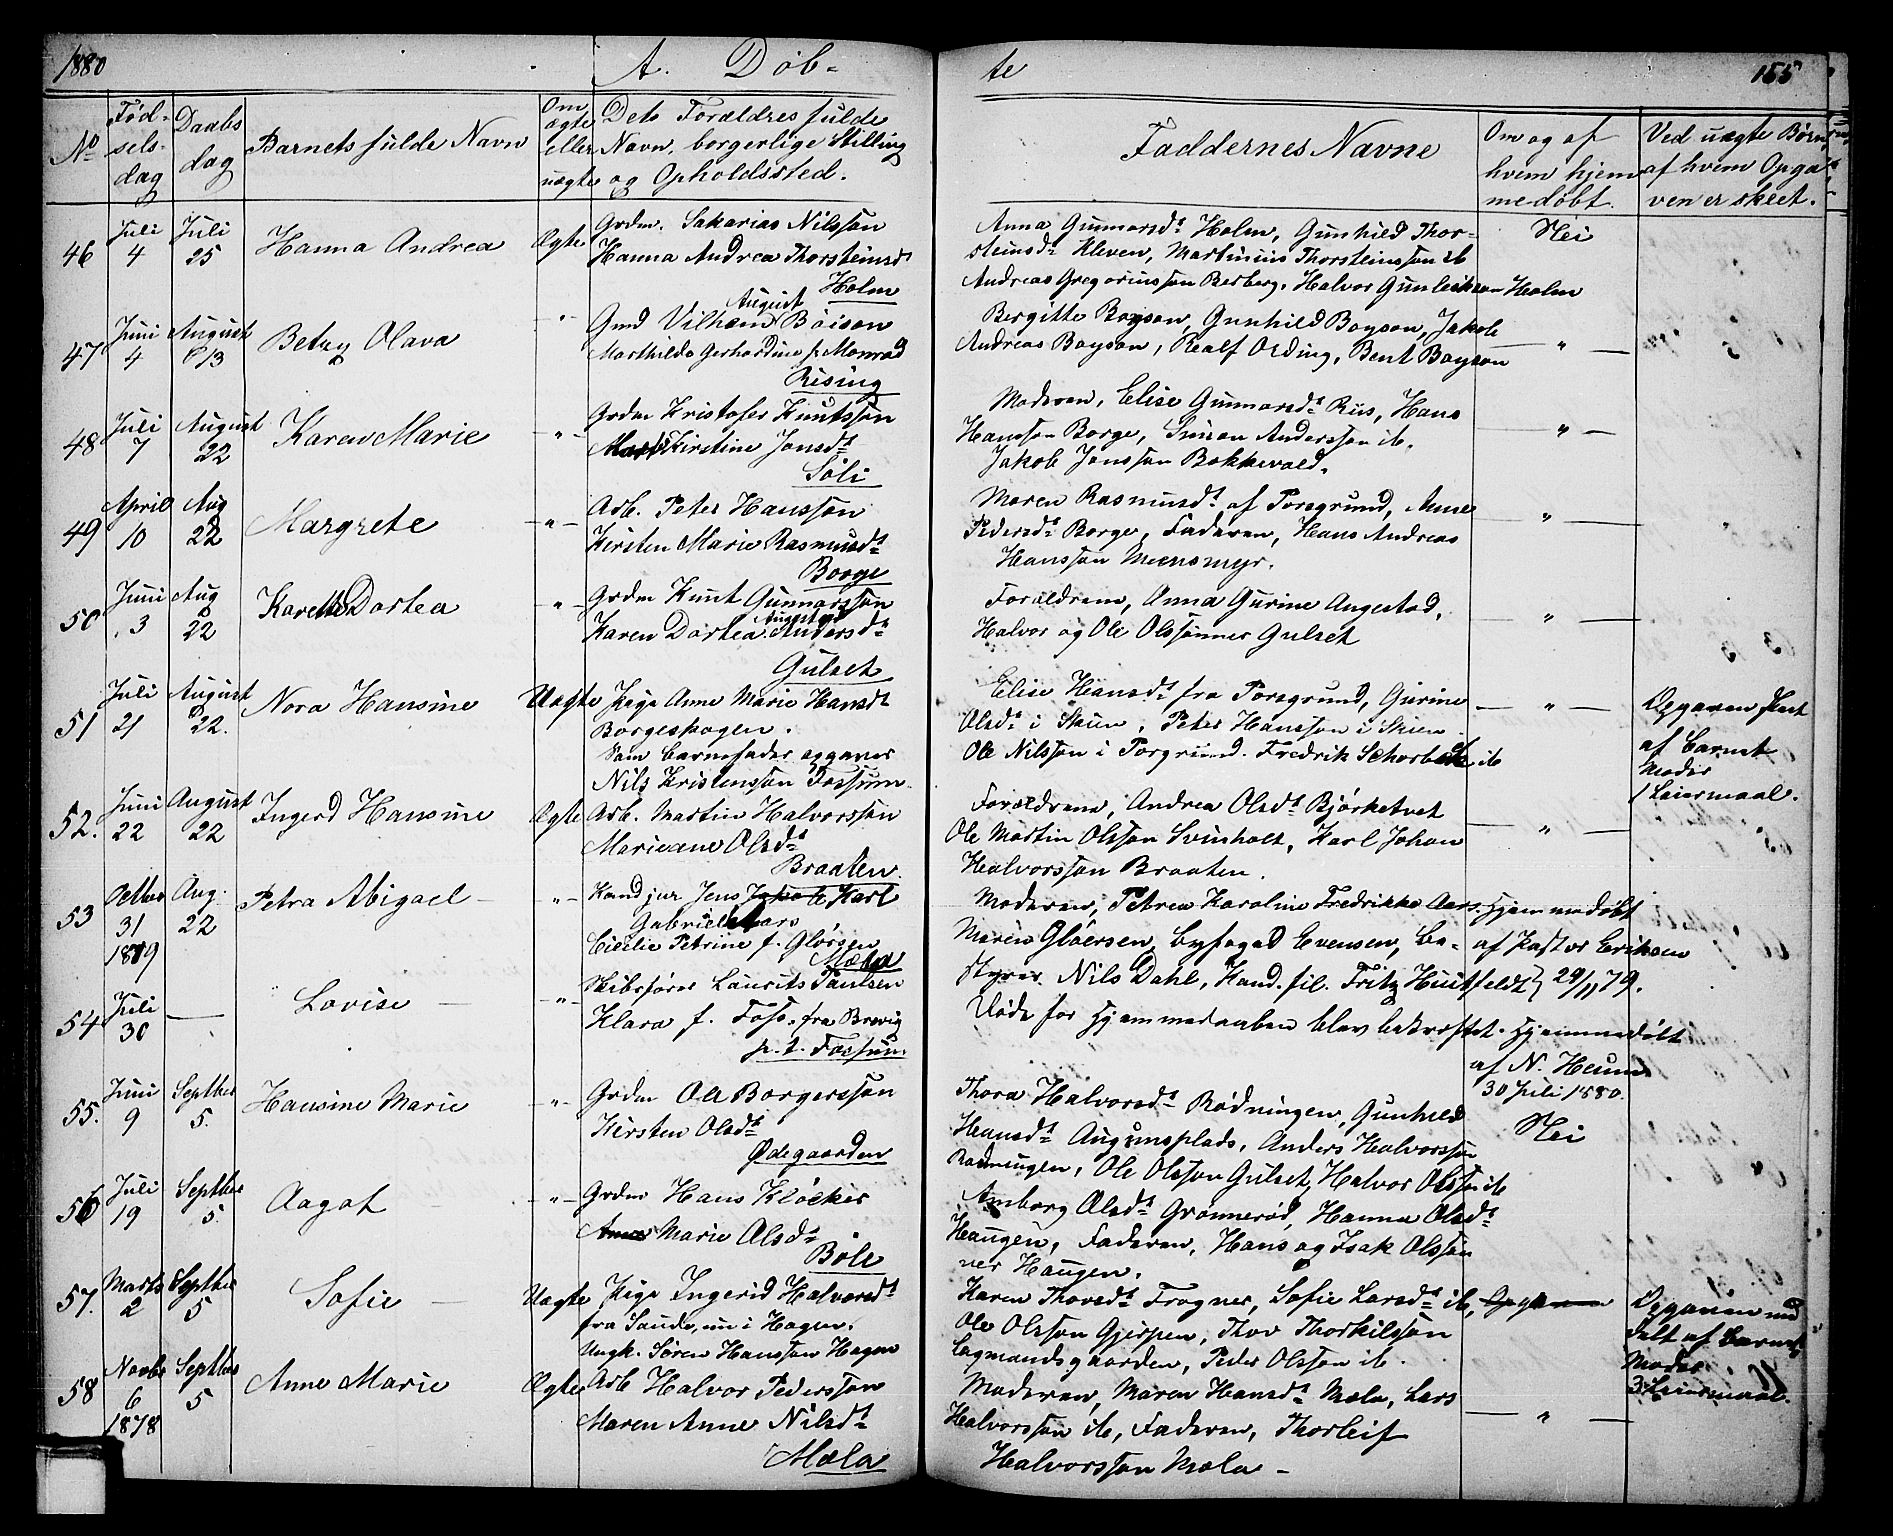 1880 A. Døb- te 155
No Fødselsdag Daabsdag Barnets fulde Navn Om ægte eller uægte Dets Forældres fulde Navn, borgerlige Stilling og Opholdssted. Faddernes Navne Om og af hvem hjemmedøbt. Ved uægte Børn, af hvem Opgaven er skeet.
46 Juli 4 Juli 25 Hanna Andrea Ægte Grdm. Sakarias Nilssøn
Hanna Andrea Thorsteinsdt
Holm
Anna Gunnarsdt Holm, Gunhild Thor-
steinsdt Kleven, Martinius Thorsteinssøn ib
Andreas Gregoriussøn Berberg. Halvor Gunleikson Holm
Nei
47 Juni 4 August 13 Betzy Olava " Gmd Vilhem August Böison
Marthilde Gerhardine f. Monrad
Rising
Bergitte Boyson, Gunhild Boyson, Jakob
Andreas Boyson, Realf Ording, Bent Boyson
— " —
48 Juli 7 August 22 Karen Marie — " — Grdm Kristofer Knutssøn
Kirstine Jonsdt
Söli
Moderen, Elise Gunnarsdt Riis, Hans
Hanssøn Borge, Simon Anderssøn ib.
Jakob Jonssøn Bakkevold.
— " —
49 April 10 Aug 22 Margrete — " — Arb. Peter Hanssøn
Kirsten Marie Rasmusdt
Borge
Maren Rasmusdt af Porsgrund, Anne
Pedersdt Borge, Faderen, Hans Andreas
Hanssøn Meensmyr.
— " —
50 Juni 3 Aug 22 Karen Dortea — " — Grdm Knut Gunnarssøn
Karen Dortea Andersdt
Gulset
Forældrene, Anna Gurine Augestad,
Halvor og Ole Olssønner Gulset
— " —
51 Juli 21 August 22. Nora Hansine Uægte Pige Anne Marie Hansdt
Borgeskogen.
Som barnefader opgaves
Nils Kristenssøn Fossum
Elise Hansdt fra Porsgrund, Gurine
Olsdt i Skien, Peter Hanssøn i Skien
Ole Nilssøn i Porgrund. Fredrik ib
— " —
Opgaven skeet
af Barnets
Moder
1 Leiermaal.
52. Juni 22 August 22 Ingerd Hansine Ægte Arb. Martin Halvorssøn
Marieane Olsdt
Braaten.
Forældrene, Andrea Olsdt Bjørketvet
Ole Martin Olssøn Svinholt, Karl Johan
Halvorssøn Braaten.
— " —
53 Octber 31 1879 Aug. 22 Petra Abigael — — " — Handjur Jens Jakob Karl
Gabriel Aars
Cicelie Petrine f. Gløersen
Mæla
Moderen, Petrea Karoline Fredrikke Aars.
Maren Gløersen, byfoged Evensen, Be-
styrer Nils Dahl, Kand. fil. Fritz Huitfeldt
Hjemmedøbt
af Pastor Eriksen
29/11 79.
54 Juli 30 — Lovise — — " — Skibsfører Laurits Paulsen
Klara f. Foss. fra Brevig
p. t. Fossum.
Døde før Hjemmedaaben blev bekræftet. Hjemmedøbt
af N. Heum
30 Juli 1880.
55. Juni 9 Septber 5. Hansine Marie — " — Grdm Ole Borgerssøn
Kirsten Olsdt
Ødegaarden
Thora Halvorsdt Rødningen, Gunhild
Hansdt Augunsplads, Anders Halvorssøn
Rødningen, Ole Olssøn Gulset, Halvor Olssøn ib
Nei
56 Juli 19 Septber 5. Aagot — " — Grdm Hans Kløcker
Marie Olsdt
Böle
Amborg Olsdt Grønnerød, Hanna Olsdt
Haugen, Faderen, Hans og Isak Olssøn
ner Haugen.
57. Marts 2 Septber 5 Sofie — Uægte Pige Ingerid Halvorsdt
fra Saude, nu i Hagen.
Ungk. Søren Hanssøn Hagen
Karen Thorsdt Frogner, Sofie Larsdt ib,
Ole Olssøn Gjerpen, Thov Thorkilssøn
Lagmandsgaarden, Peder Olssøn ib.
Opgaven med
delt af Barnets
Moder
3 Leiermaal.
58 Novbr 6 1878 Septber 5 Anne Marie Ægte Arb Halvor Pederssøn
Maren Anne Nilsdt
Mæla
Moderen, Maren Hansdt Mæla, Lars
Halvorssøn ib, Faderen, Thorleif
Halvorssøn Mæla —
— " —